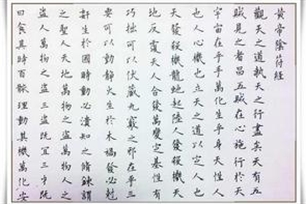 黃帝陰符經
觀天之道執天之行盡矣天有五
賊見之者昌五賊在心施行於天
宇宙在乎手萬化生乎身天性人
也人心機也立天之道以定人也
天發殺機龍蛇起陸人發殺機天
地反覆天人合發萬變定基性有
巧拙可以伏藏九竅之邪在乎三
要可以動靜火生於木禍發必剋
姦生於國時動必潰知之脩鍊謂
之聖人天地萬物之盜萬物人之
盜人萬物之盜三盜既宜三才既
曰食其時百骸理動其機萬化安